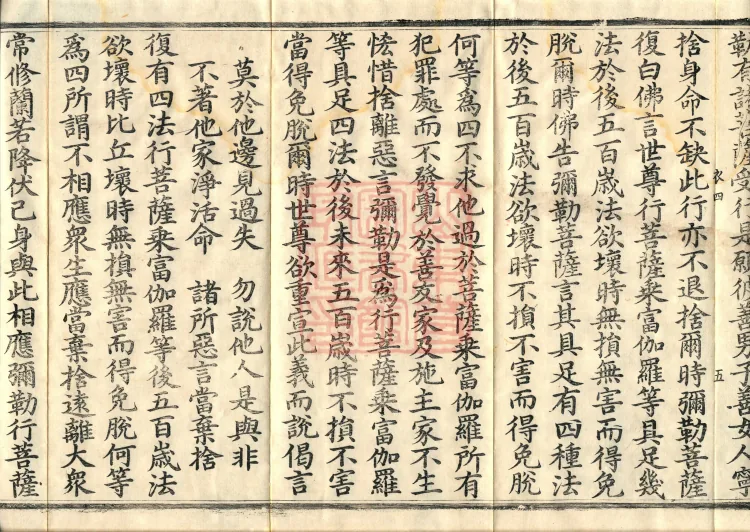 勒有諸菩薩受行是願彼善男子善女人寧
捨身命不缺此行亦不退捨爾時彌勒菩薩
衣四 五
復白佛言世尊行菩薩乘富伽羅等具足幾
法於後五百歲法欲壞時無損無害而得免
脫爾時佛告彌勒菩薩言其具足有四種法
於後五百歲法欲壞時不損不害而得免脫
何等為四不求他過於菩薩乘富伽羅所有
犯罪處而不發覺於善友家及施主家不生
悋惜捨離惡言彌勒是為行菩薩乘富伽羅
等具足四法於後未來五百歲時不損不害
當得免脫爾時世尊欲重宣此義而說偈言
莫於他邊見過失 勿說他人是與非
不著他家淨活命 諸所惡言當棄捨
復有四法行菩薩乘富伽羅等後五百歲法
欲壞時比丘壞時無損無害而得免脫何等
為四所謂不相應眾生應當棄捨遠離大眾
常修蘭若降伏己身與此相應彌勒行菩薩